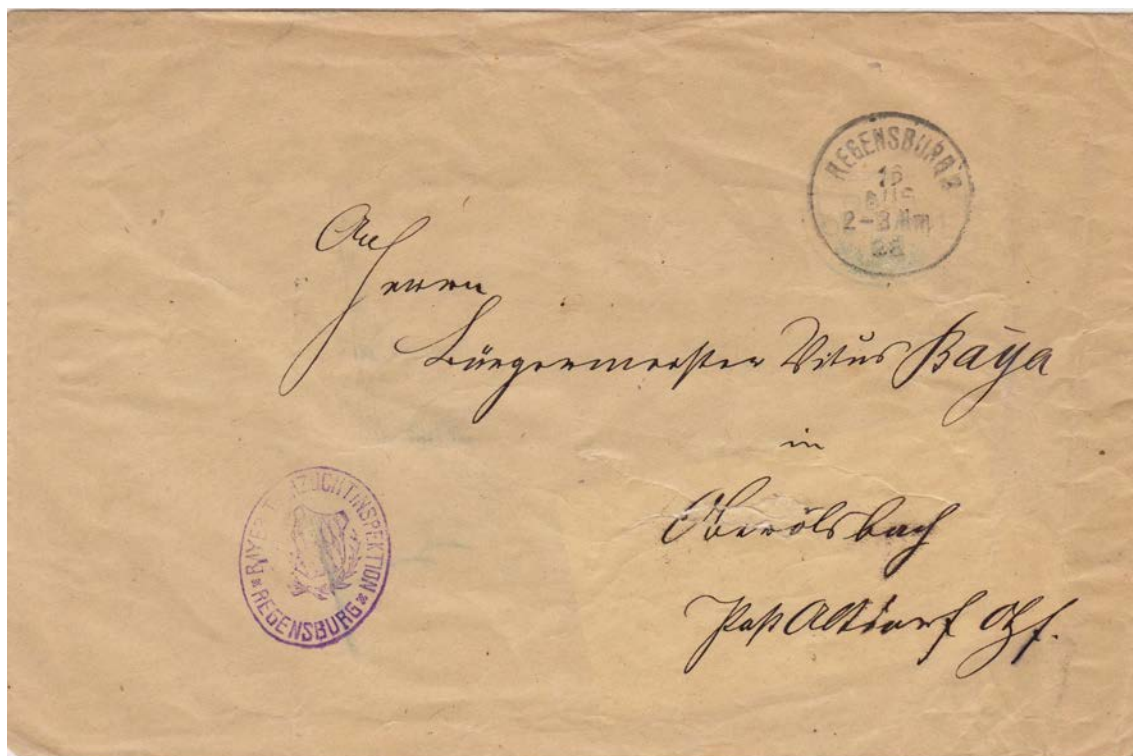 REGENSBURG 2
16
AUG
2-3 Nm
An
Herrn
Bürgermeister Vitus Baya
in
Oberölsbach
Post Altdorf Opf.
BAYER. TIERZUCHTINSPEKTION
* REGENSBURG *